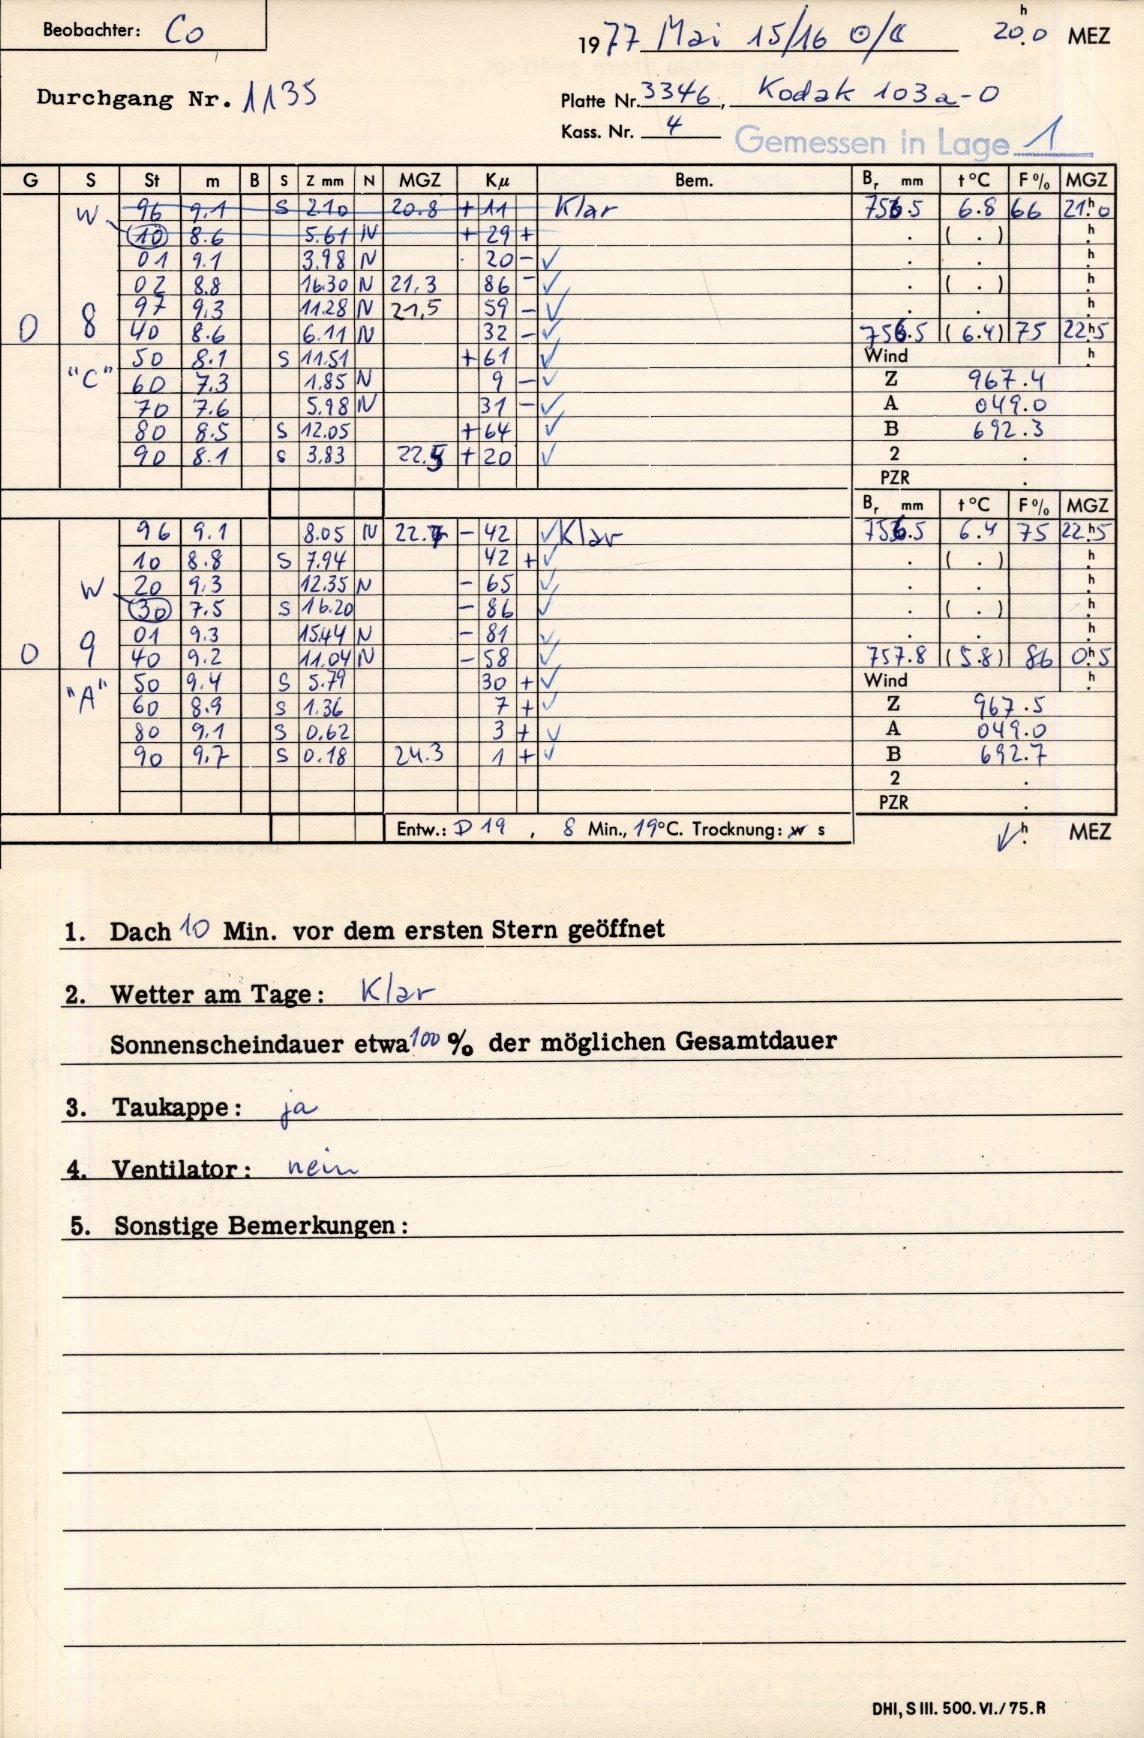 Beobachter: Co
1977 Mai 15/16 ⊙/☾ 20.0 h MEZ
Durchgang Nr. 1135
Platte Nr. 3346, Kodak 103a-O
Kass. Nr. 4 Gemessen in Lage 1
G S St m B S Z mm N MGZ Kμ Bem. Br mm t °C F % MGZ
W 96 9.1 S 2.10 20.8 + 11 Klar 756.5 6.8 66 21h0
10 8.6 5.61 N + 29 + . ( . ) h
01 9.1 3.98 N 20 - ✓ . . h
02 8.8 16.30 N 21,3 86 - ✓ . ( . ) h
97 9,3 11.28 N 21,5 59 - ✓ . . h
0 8 40 8.6 6.11 N 32 - ✓ 756.5 (6.4) 75 22h5
"C" 50 8.1 S 11.51 + 61 ✓ Wind h
60 7.3 1.85 N 9 - ✓ Z 967.4
70 7.6 5.98 N 31 - ✓ A 049.0
80 8.5 S 12.05 + 64 ✓ B 692.3
90 8.1 S 3.83 22.5 + 20 ✓ 2 .
PZR .
Br mm t °C F % MGZ
96 9.1 8.05 N 22.7 - 42 ✓ Klar 756.5 6.4 75 22h5
10 8.8 S 7.94 42 + ✓ . ( . ) h
W 20 9.3 12.35 N - 65 ✓ . . h
30 7.5 S 16.20 - 86 ✓ . ( . ) h
01 9.3 15.44 N - 81 ✓ . . h
0 9 40 9.2 11.04 N - 58 ✓ 757.8 (5.8) 86 0h5
"A" 50 9.4 S 5.79 30 + ✓ Wind h
60 8.9 S 1.36 7 + ✓ Z 967.5
80 9.1 S 0.62 3 + ✓ A 049.0
90 9.7 S 0.18 24.3 1 + ✓ B 692.7
2 .
PZR .
Entw.: D 19, 8 Min., 19°C. Trocknung: w s h MEZ
1. Dach 10 Min. vor dem ersten Stern geöffnet
2. Wetter am Tage: Klar
Sonnenscheindauer etwa 100 % der möglichen Gesamtdauer
3. Taukappe: ja
4. Ventilator: nein
5. Sonstige Bemerkungen:
DHI, S III. 500. VI./75. R